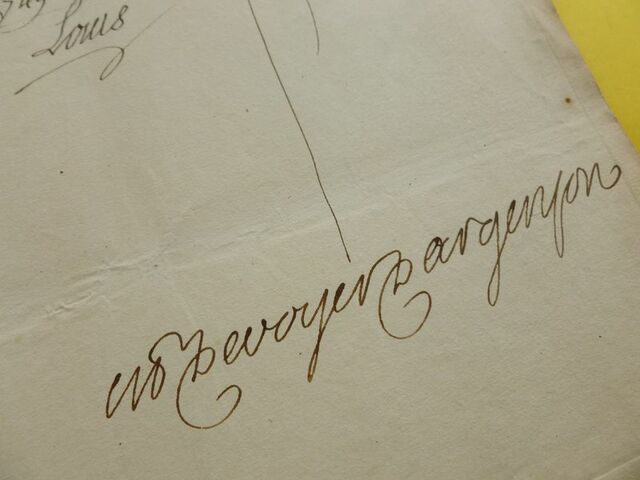 Louis
De voyer D argenson